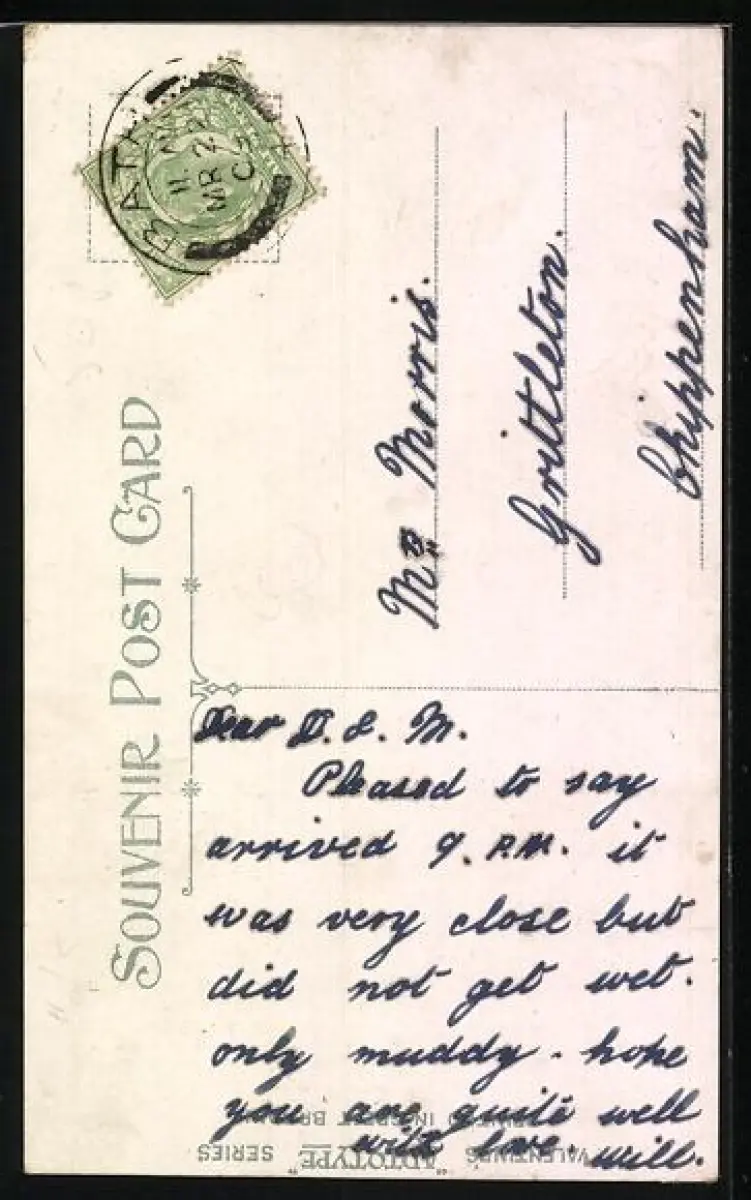 SOUVENIR POST CARD
BATH
11 AM
MR 22
Mrs Morris.
Grittleton.
Chippenham.
Dear D. L. M.
Pleased to say
arrived 9. P.M. it
was very close but
did not get wet.
only muddy. hope
you are quite well
with love. will.
VALENTINES "ARTOTYPE" SERIES